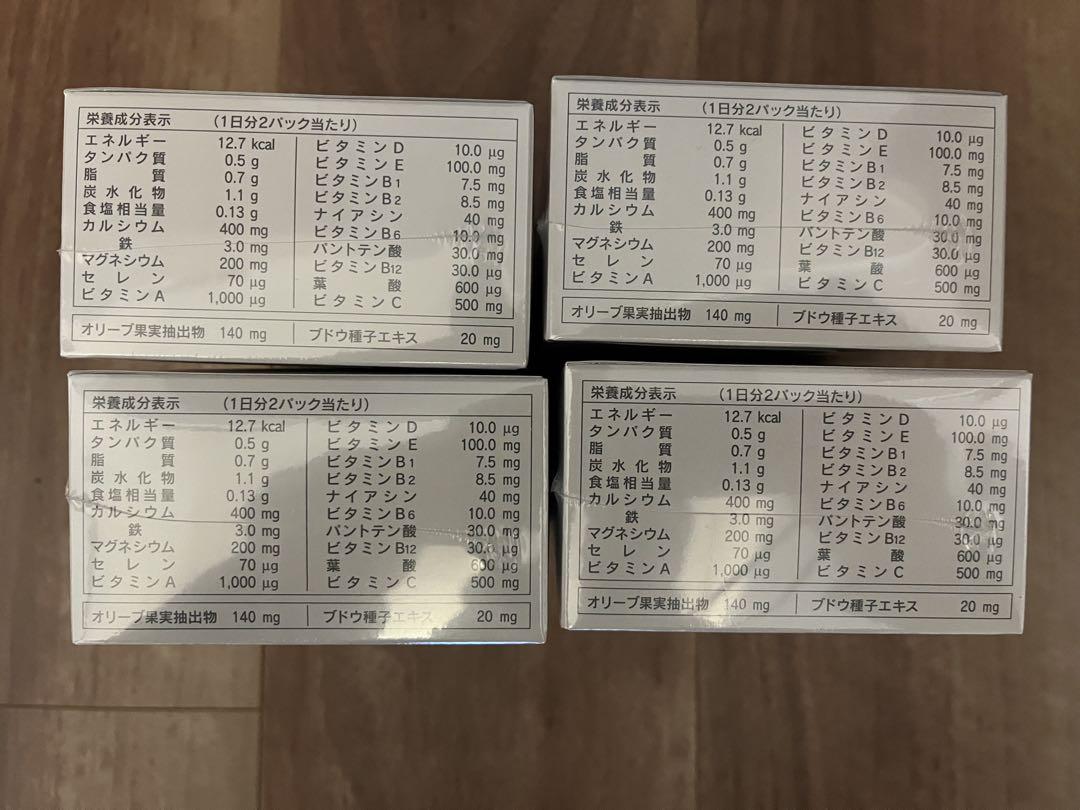 栄養成分表示 (1日分2パック当たり)
エネルギー 12.7 kcal
タンパク質 0.5 g
脂質 0.7 g
炭水化物 1.1 g
食塩相当量 0.13 g
カルシウム 400 mg
鉄 3.0 mg
マグネシウム 200 mg
セレン 70 μg
ビタミンA 1,000 μg
ビタミンD 10.0 μg
ビタミンE 100.0 mg
ビタミンB1 7.5 mg
ビタミンB2 8.5 mg
ナイアシン 40 mg
ビタミンB6 10.0 mg
パントテン酸 30.0 mg
ビタミンB12 30.0 μg
葉酸 600 μg
ビタミンC 500 mg
オリーブ果実抽出物 140 mg ブドウ種子エキス 20 mg
栄養成分表示 (1日分2パック当たり)
エネルギー 12.7 kcal
タンパク質 0.5 g
脂質 0.7 g
炭水化物 1.1 g
食塩相当量 0.13 g
カルシウム 400 mg
鉄 3.0 mg
マグネシウム 200 mg
セレン 70 μg
ビタミンA 1,000 μg
ビタミンD 10.0 μg
ビタミンE 100.0 mg
ビタミンB1 7.5 mg
ビタミンB2 8.5 mg
ナイアシン 40 mg
ビタミンB6 10.0 mg
パントテン酸 30.0 mg
ビタミンB12 30.0 μg
葉酸 600 μg
ビタミンC 500 mg
オリーブ果実抽出物 140 mg ブドウ種子エキス 20 mg
栄養成分表示 (1日分2パック当たり)
エネルギー 12.7 kcal
タンパク質 0.5 g
脂質 0.7 g
炭水化物 1.1 g
食塩相当量 0.13 g
カルシウム 400 mg
鉄 3.0 mg
マグネシウム 200 mg
セレン 70 μg
ビタミンA 1,000 μg
ビタミンD 10.0 μg
ビタミンE 100.0 mg
ビタミンB1 7.5 mg
ビタミンB2 8.5 mg
ナイアシン 40 mg
ビタミンB6 10.0 mg
パントテン酸 30.0 mg
ビタミンB12 30.0 μg
葉酸 600 μg
ビタミンC 500 mg
オリーブ果実抽出物 140 mg ブドウ種子エキス 20 mg
栄養成分表示 (1日分2パック当たり)
エネルギー 12.7 kcal
タンパク質 0.5 g
脂質 0.7 g
炭水化物 1.1 g
食塩相当量 0.13 g
カルシウム 400 mg
鉄 3.0 mg
マグネシウム 200 mg
セレン 70 μg
ビタミンA 1,000 μg
ビタミンD 10.0 μg
ビタミンE 100.0 mg
ビタミンB1 7.5 mg
ビタミンB2 8.5 mg
ナイアシン 40 mg
ビタミンB6 10.0 mg
パントテン酸 30.0 mg
ビタミンB12 30.0 μg
葉酸 600 μg
ビタミンC 500 mg
オリーブ果実抽出物 140 mg ブドウ種子エキス 20 mg